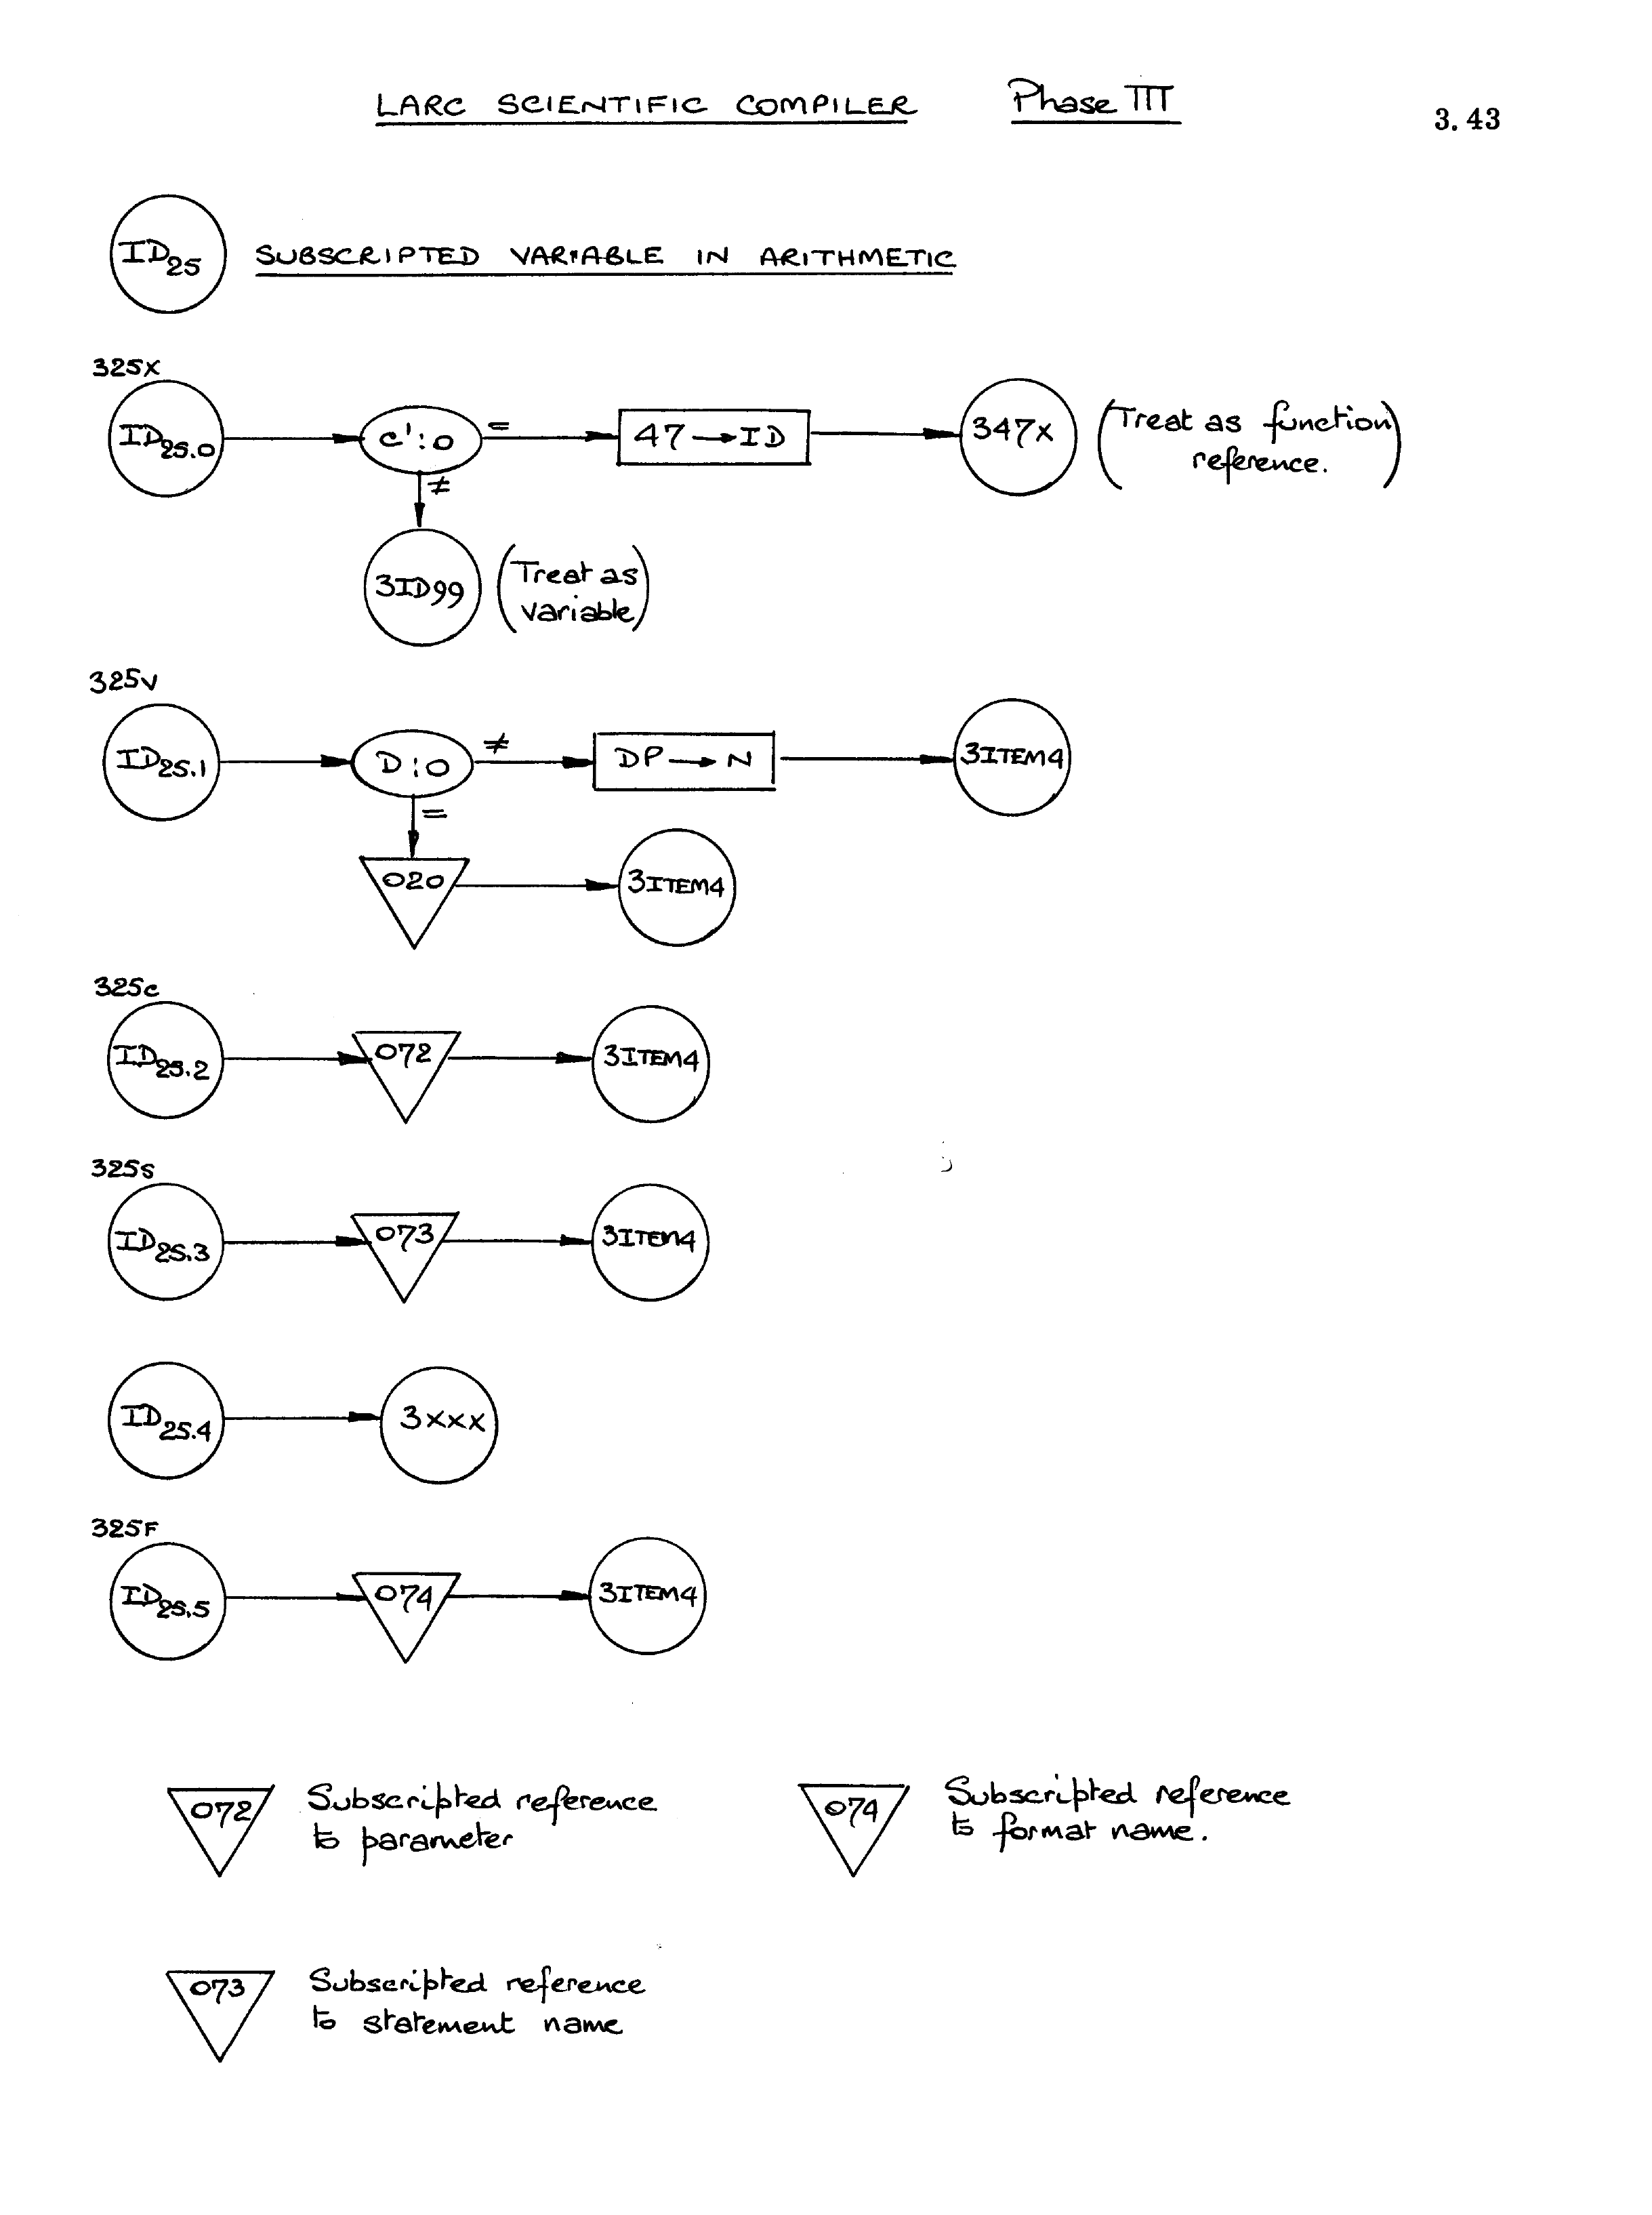 LARC SCIENTIFIC COMPILER Phase III 3.43
ID25 SUBSCRIPTED VARIABLE IN ARITHMETIC
325X
ID25.0 C':0 = 47→ID 347X (Treat as function
reference.)
≠
3ID99 (Treat as
variable)
325V
ID25.1 D:0 ≠ DP→N 3ITEM4
=
020 3ITEM4
325C
ID25.2 072 3ITEM4
325S
ID25.3 073 3ITEM4
ID25.4 3XXX
325F
ID25.5 074 3ITEM4
072 Subscripted reference
to parameter
074 Subscripted reference
to format name.
073 Subscripted reference
to statement name